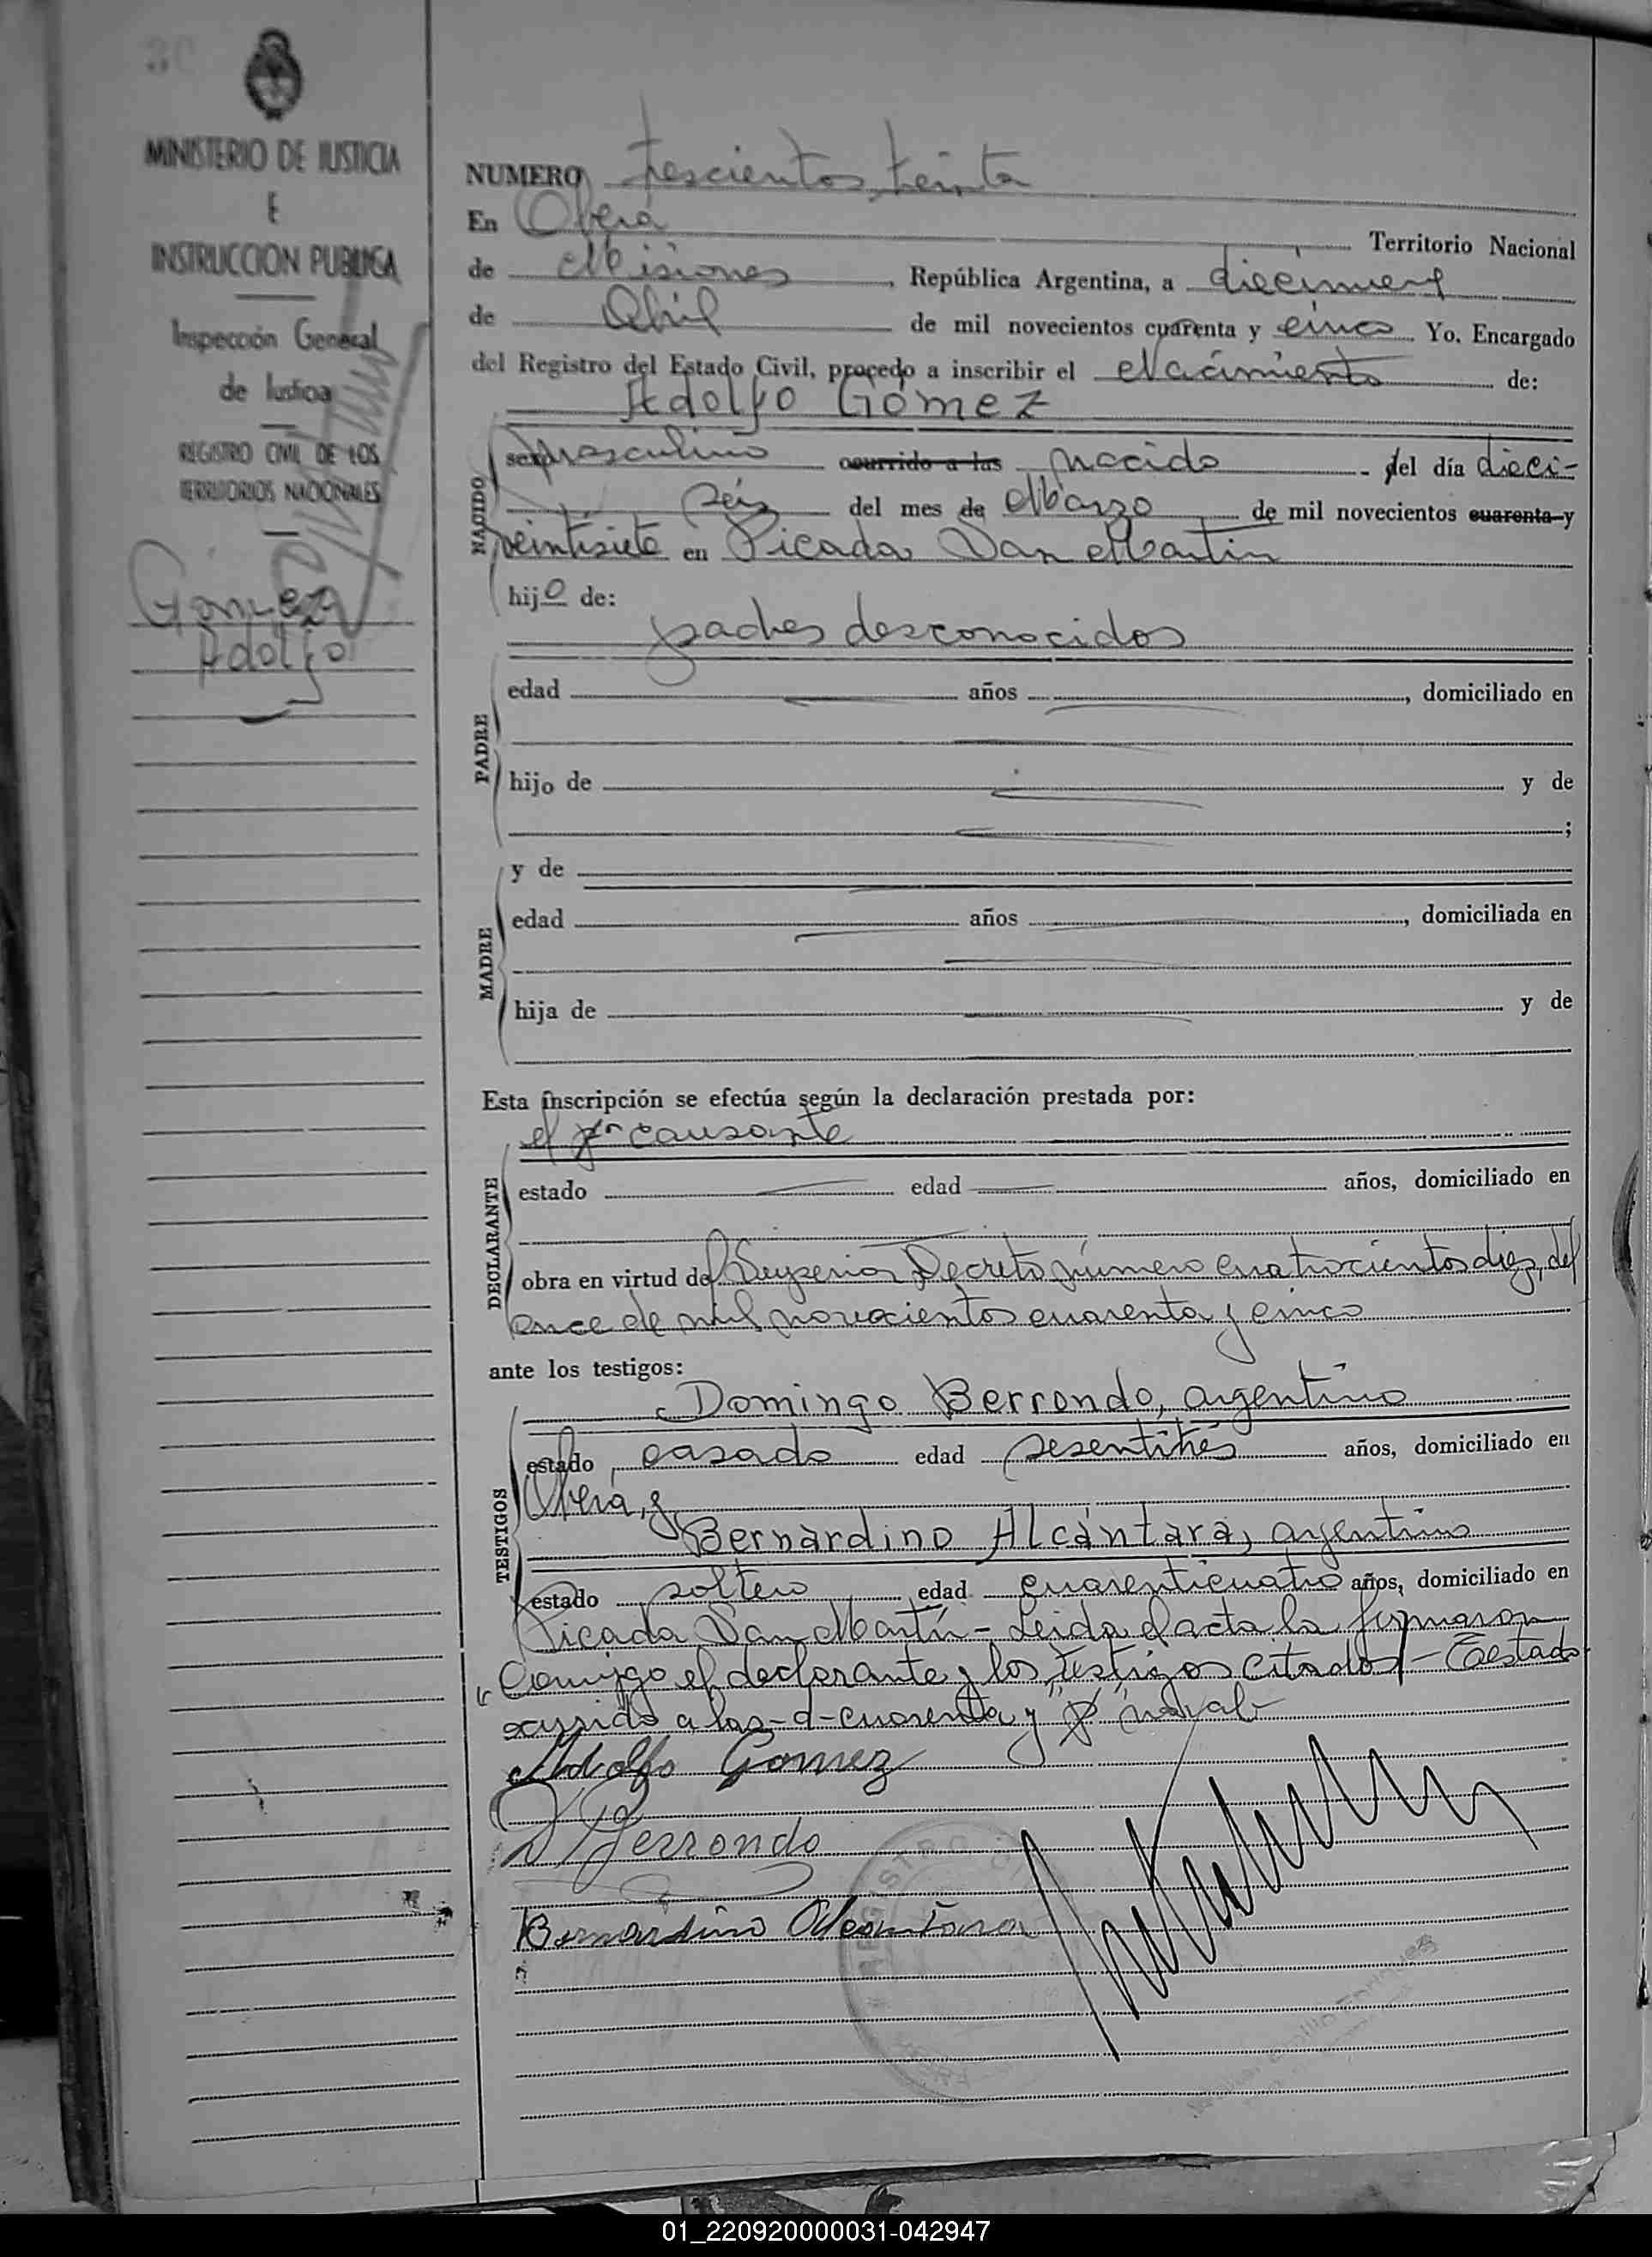 MINISTERIO DE JUSTICIA
E
INSTRUCCION PUBLICA
Inspección General
de Justicia
REGISTRO CIVIL DE LOS
TERRITORIOS NACIONALES
Gómez
Adolfo
NUMERO trescientos treinta
En Oberá Territorio Nacional
de Misiones, República Argentina, a diecinueve
de Abril de mil novecientos cuarenta y cinco Yo, Encargado
del Registro del Estado Civil, procedo a inscribir el Nacimiento de:
Adolfo Gómez
NACIDO
sexo masculino ocurrido a las nacido del día dieci-
seis del mes de Marzo de mil novecientos cuarenta y
veintisiete en Picada San Martín
hijo de:
padres desconocidos
PADRE
edad años, domiciliado en
hijo de y de
;
MADRE
y de
edad años, domiciliada en
hija de y de
Esta inscripción se efectúa según la declaración prestada por:
el causante
DECLARANTE
estado edad años, domiciliado en
obra en virtud del Superior Decreto número cuatrocientos diez, del
once de mil novecientos cuarenta y cinco
ante los testigos:
TESTIGOS
Domingo Berrondo, argentino
estado casado edad sesentitrés años, domiciliado en
Oberá, y
Bernardino Alcántara, argentino
estado soltero edad cuarenticuatro años, domiciliado en
Picada San Martín - Leida el acta la firmaron
Conmigo el declarante y los testigos citados - Testado
ocurrido a las - d - cuarenta y no vale
Adolfo Gomez
D Berrondo
Bernardino Alcantara
REGISTRO
01_220920000031-042947